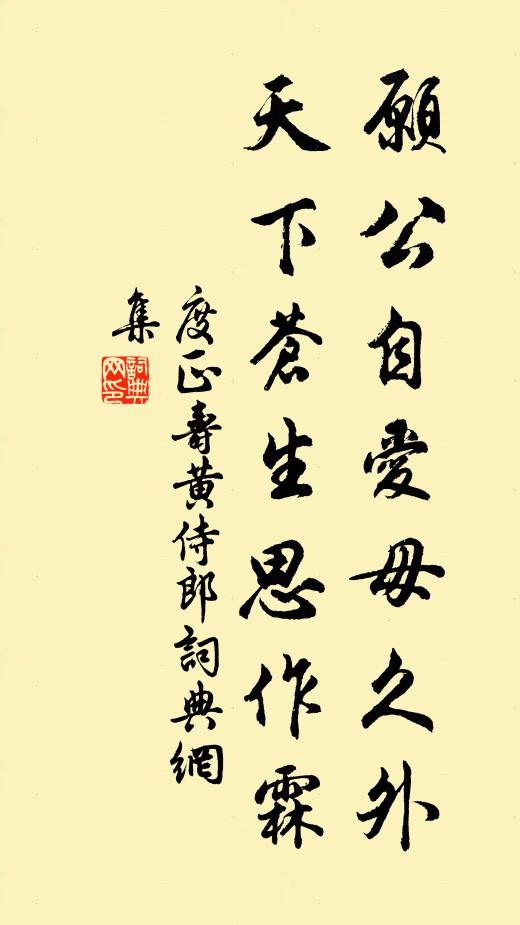 願公自愛毋久外
天下蒼生思作霖
度正壽黃侍郎詞典網
集
詞典
网印